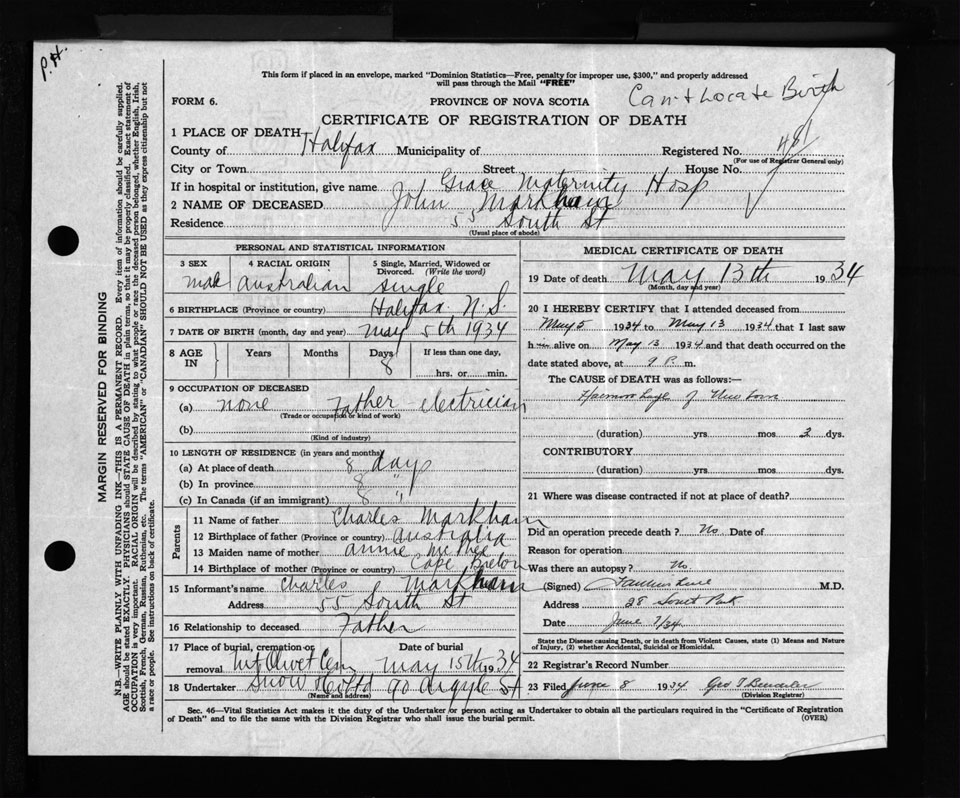 P.H.
This form if placed in an envelope, marked "Dominion Statistics—Free, penalty for improper use, $300," and properly addressed
will pass through the Mail "FREE"
Can't Locate Birth
FORM 6.
PROVINCE OF NOVA SCOTIA
CERTIFICATE OF REGISTRATION OF DEATH
1 PLACE OF DEATH
County of Halifax Municipality of Registered No. 481
(For use of Registrar General only)
City or Town Street House No.
If in hospital or institution, give name Grace Maternity Hosp
2 NAME OF DECEASED John Markham
Residence 55 South St
(Usual place of abode)
PERSONAL AND STATISTICAL INFORMATION
3 SEX 4 RACIAL ORIGIN 5 Single, Married, Widowed or Divorced. (Write the word)
male Australian single
6 BIRTHPLACE (Province or country) Halifax N.S.
7 DATE OF BIRTH (month, day and year) May 5th 1934
8 AGE IN Years Months Days If less than one day,
8 hrs. or min.
9 OCCUPATION OF DECEASED
(a) none Father electrician
(Trade or occupation or kind of work)
(b)
(Kind of industry)
10 LENGTH OF RESIDENCE (in years and months)
(a) At place of death 8 days
(b) In province 8 "
(c) In Canada (if an immigrant) 8 "
Parents
11 Name of father Charles Markham
12 Birthplace of father (Province or country) Australia
13 Maiden name of mother Annie
14 Birthplace of mother (Province or country) Cape Breton
15 Informant's name Charles Markham
Address 55 South St
16 Relationship to deceased Father
17 Place of burial, cremation or Date of burial
removal Mt Olivet Cem May 15th 1934
18 Undertaker Snow & Co Ltd 90 Argyle St
(Name and address)
MEDICAL CERTIFICATE OF DEATH
19 Date of death May 13th 1934
(Month, day and year)
20 I HEREBY CERTIFY that I attended deceased from
May 5 1934 to May 13 1934 that I last saw
h im alive on May 13 1934 and that death occurred on the
date stated above, at 9 P. m.
The CAUSE OF DEATH was as follows:—
Haemorrhage of New born
(duration) yrs mos 2 dys.
CONTRIBUTORY
(duration) yrs mos dys.
21 Where was disease contracted if not at place of death?
Did an operation precede death? No Date of
Reason for operation
Was there an autopsy? No.
(Signed) M.D.
Address 28 South Park
Date June 7/34
State the Disease causing Death, or in death from Violent Causes, state (1) Means and Nature
of Injury, (2) whether Accidental, Suicidal or Homicidal.
22 Registrar's Record Number
23 Filed June 8 1934 Geo
(Division Registrar)
Sec. 46—Vital Statistics Act makes it the duty of the Undertaker or person acting as Undertaker to obtain all the particulars required in the "Certificate of Registration
of Death" and to file the same with the Division Registrar who shall issue the burial permit.
(OVER)
MARGIN RESERVED FOR BINDING
N.B.—WRITE PLAINLY WITH UNFADING INK—THIS IS A PERMANENT RECORD. Every item of information should be carefully supplied.
AGE should be stated EXACTLY. PHYSICIANS should STATE CAUSE OF DEATH in plain terms, so that it may be properly classified. Exact statement of
OCCUPATION is very important. RACIAL ORIGIN will be described by stating to what people or race the deceased person belonged, whether English, Irish,
Scottish, French, German, Russian, Ruthenian, etc. The terms "AMERICAN" or "CANADIAN" SHOULD NOT BE USED as they express citizenship but not
a race or people. See instructions on back of certificate.